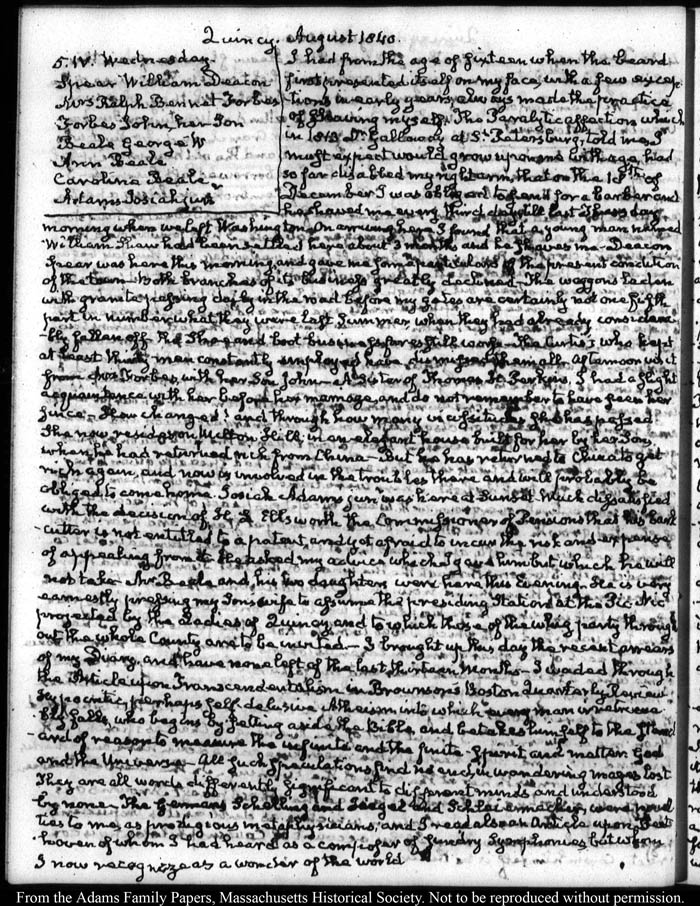 Quincy. August 1840.
5. IV. Wednesday.
Spear William Deacon
Mrs Ralph Bennet Forbes
Forbes John, her Son
Beale George W
Ann Beale
Caroline Beale
Adams Josiah junr
I had from the age of sixteen when the beard
first presented itself on my face, with a few excep
tions in early years, always made the practice
of shaving myself. The Paralytic affection which
in 1813 Dr Galloway at St. Petersburg, told me I
must expect would grow upon me with age, had
so far disabled my right arm, that on the 18th of
December I was obliged to send for a barber and
he shaved me every third day till last Thursday
morning when we left Washington. On arriving here I found that a young man named
William Shaw had been settled here about 3 months and he shaves me. Deacon
Spear was here this morning and gave me some particulars of the present condition
of the town. Both branches of its business greatly declined. The waggons laden
with granite passing daily in the road before my gates are certainly not one fifth
part in number what they were last Summer when they had already considera
bly fallen off. The Shoe and boot business fares still worse. The Curtis's who kept
at least thirty men constantly employed have dismissed them all. Afternoon visit
from Mrs Forbes, with her Son John. A Sister of Thomas H. Perkins, I had a slight
acquaintance with her before her marriage, and do not remember to have seen her
since. How changed! and through how many vicissitudes she has passed.
She now resides on Milton Hill, in an elegant house built for her by her Son,
when he had returned rich from China. But he has returned to China to get
rich again, and now is involved in the troubles there and will probably be
obliged to come home. Josiah Adams jun was here at Sunset. Much dissatisfied
with the decision of H. L. Ellsworth the Commissioner of Pensions that his bark
cutter is not entitled to a patent, and yet afraid to incur the risk and expense
of appealing from it. He asked my advice which I gave him but which he will
not take. Mr Beale and his two daughters were here this evening. He is very
earnestly pressing my Sons wife to assume the presiding Station at the Pic Nic
projected by the Ladies of Quincy, and to which those of the whig party through
out the whole County are to be invited. I brought up this day the recent arrears
of my Diary, and have none left of the last thirteen Months. I waded through
the Article upon Transcendentalism in Brownson's Boston Quarterly Review
Hypocritic, perhaps self delusive Atheism into which every man
falls, who begins by setting aside the Bible, and betakes himself to the Stand
ard of reason to measure the infinite and the finite. Spirit and matter. God
and the Universe. All such speculations find no end, in wandering mazes lost
They are all words differently significant to different minds and understood
by none. The Germans Schelling and and Schleiermacher, were novel
ties to me, as prodigious metaphysicians, and I read also an Article upon Beet
hoven of whom I had heard as a composer of sundry Symphonies but whom
I now recognize as a wonder of the world
From the Adams Family Papers, Massachusetts Historical Society. Not to be reproduced without permission.